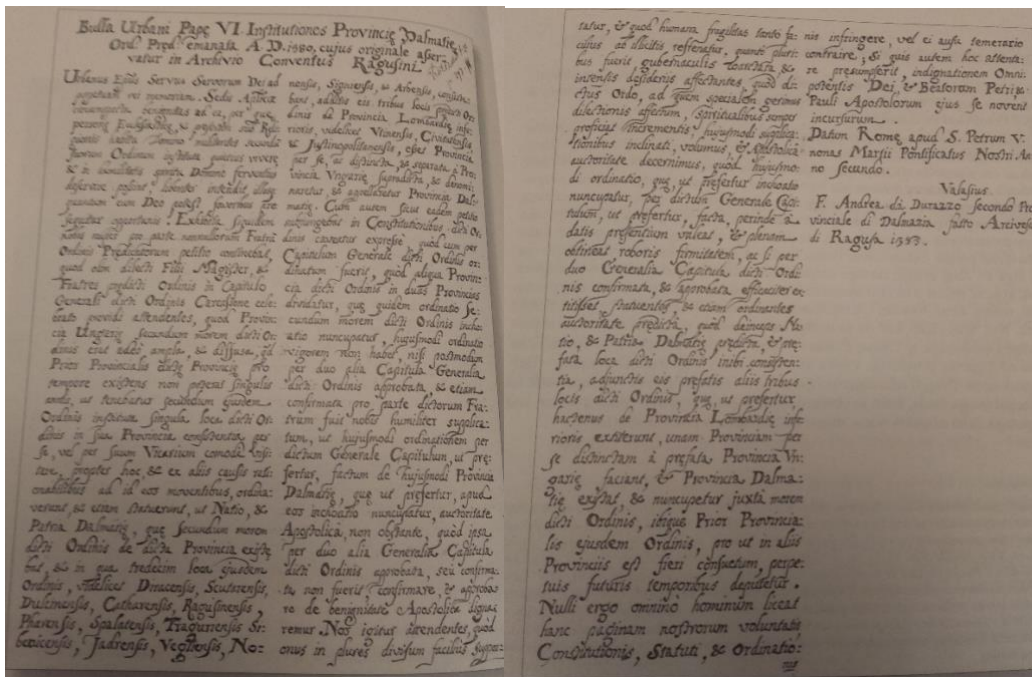 Bulla Urbani Papę VI Institutiones Provincię Dalmatię
Ord. Pręd. emanata A. D. 1380, cujus originale asser-
vatur in Archivio Conventus Ragusini.
Urbanus Epūs Servus Servorum Dei ad
perpetuam rei memoriam. Sedis Aplicę
per
personę Ecclesiasticę, & pręsertim sub Reli-
gionis habitu Domino militantes secundū
suorum Ordinum instituta quietius vivere
& in humilitatis spiritu Domino ferventius
deservire possint libenter intendit, illosq
quantum cum Deo potest favoribus pro-
sequitur opportunis. Exhibita siquidem
nobis nuper pro parte nonnullorum Fratrū
Ordinis Prędicatorum petitio continebat,
quod olim dilecti Filii Magister, &
Fratres prędicti Ordinis in Capitulo
Generali dicti Ordinis Carcassone cele-
brato providi attendentes, quod Provin-
cia Ungarię secundum morem dicti Or-
dinis erat adeo ampla, & diffusa, qd
Prior Provincialis dictę Provincię pro
tempore existens non poterat singulis
annis, ut tenebatur secundum ejusdem
Ordinis instituta singula loca dicti Or-
dinis in sua Provincia consistentia per
se, vel per suum Vicarium comode visi-
tare, propter hoc, & ex aliis causis rati-
onabilibus ad id eos moventibus, ordina-
verunt, & etiam statuerunt, ut Natio, &
Patria Dalmatię, quę secundum morem
dicti Ordinis de dicta Provincia existe-
bat, & in qua tredecim loca ejusdem
Ordinis, videlicet Diracensis, Scutarensis,
Dulcinensis, Catharensis, Ragusinensis,
Pharensis, Spalatensis, Traguriensis Si-
benicensis, Jadrensis, Vegliensis, No-
nensis, Signiensis, & Arbensis, consiste-
bant, adactis eis tribus locis dicti Or-
dinis de Provincia Lombardię infe-
rioris, videlicet Utinensis, Civitatensis,
& Justinopolitanensis, esset Provincia
per se, ac distincta, & separata à Pro-
vincia Ungarię supradicta, & denomi-
naretur, & appellaretur Provincia Dal-
matię. Cum autem sicut eadem petitio
subjungebat in Constitutionibus dicti Or-
dinis caveatur expresse quod cum per
Capitulum Generale dicti Ordinis or-
dinatum fuerit, quod aliqua Provin-
cia dicti Ordinis in duas Provincias
dividatur, quę quidem ordinatio se-
cundum morem dicti Ordinis incho-
atio nuncupatur, hujusmodi ordinatio
vigorem non habet, nisi postmodum
per duo alia Capitula Generalia
dicti Ordinis approbata, & etiam
confirmata pro parte dictorum Fra-
trum fuit nobis humiliter supplica-
tum, ut hujusmodi ordinationem per
dictum Generale Capitulum, ut prę-
fertur, factam de hujusmodi Provincia
Dalmatię, quę ut pręfertur, apud
eos inchoatio nuncupatur, auctoritate
Apostolica, non obstante, quòd ipsa
per duo alia Generalia Capitula
dicti Ordinis approbata, seu confirma-
ta non fuerit confirmare, & approba-
re de benignitate Apostolica digna-
remur. Nos igitur attendentes, quod
onus in plures divisum facilius suppor-
tatur, & quod humana fragilitas tanto fa-
cilius ab illicitis refrenatur, quanto pluri-
bus fuerit gubernaculis &
intensis desideriis affectantes, quod di-
ctus Ordo, ad quem specialem gerimus
dilectionis affectum, spiritualibus semper
proficiat incrementis hujusmodi supplica-
tionibus inclinati, volumus, & Apostolica
auctoritate decernimus, quòd hujusmo-
di ordinatio, quę, ut pręfertur inchoatio
nuncupatur, per dictum Generale Capi-
tulum, ut pręfertur, facta, perinde à
datis pręsentium valeat, & plenam
obtineat roboris firmitatem, ac si per
duo Generalia Capitula dicti Ordi-
nis confirmata, & approbata efficaciter ex-
titisset statuentes, & etiam ordinantes
auctoritate prędicta, quod deinceps Na-
tio, & Patria Dalmatię prędictę, & prę-
fata loca dicti Ordinis inibi consisten-
tia, adjunctis eis pręfatis aliis tribus
locis dicti Ordinis, quę ut pręfertur
hactenus de Provincia Lombardię infe-
rioris, extiterunt, unam Provinciam per
se distinctam à pręfata Provincia Vn-
garię faciant, & Provincia Dalma-
tię existat, & nuncupetur juxta morem
dicti Ordinis, ibique Prior Provincia-
lis ejusdem Ordinis, pro ut in aliis
Provinciis est fieri consuetum, perpe-
tuis futuris temporibus deputetur.
Nulli ergo omnino hominum liceat
hanc paginam nostrorum voluntatis
Constitutionis, Statuti, & Ordinatio-
nis
nis infringere, vel ei ausu temerario
contraire, Si quis autem hoc attenta-
re presumpserit, indignationem Omni-
potentis Dei, & Beatorum Petri, &
Pauli Apostolorum ejus se noverit
incursurum.
Datum Romę apud S. Petrum V.
nonas Martii Pontificatus Nostri An-
no secundo.
Valasius.
F. Andrea di Durazzo secondo Pro-
vinciale di Dalmazia fatto Arcivesco
di Ragusa 1383.